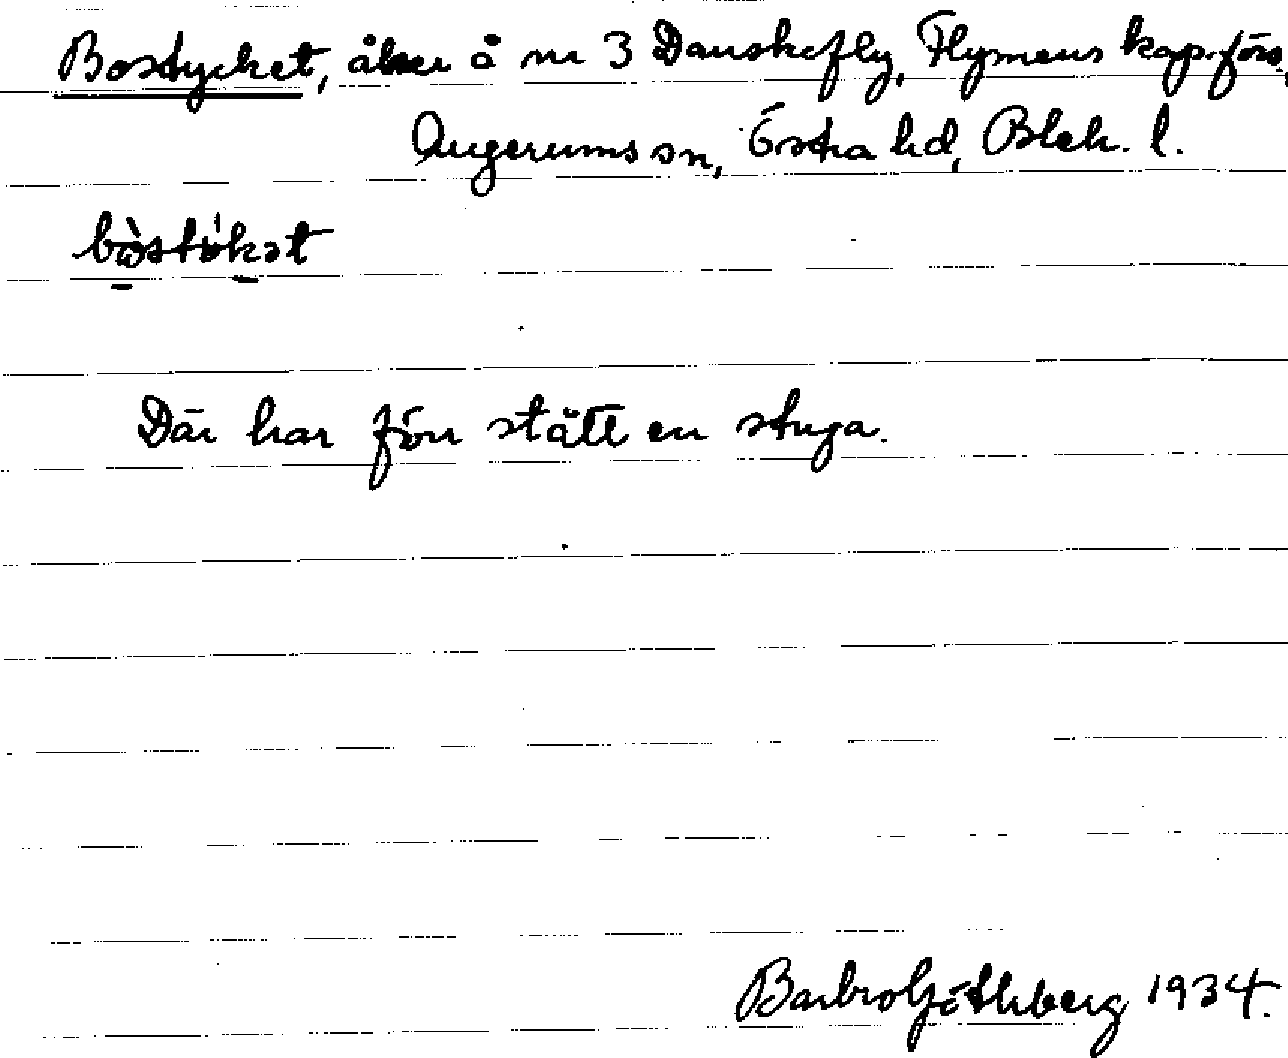 Bostycket, åker å nr 3 Danskefly, Flymens kap.förs.,
Augerums sn, Östra hd, Blek. l.
bòstỳkət
Där har förr stått en stuga.
Barbro Göthberg 1934.